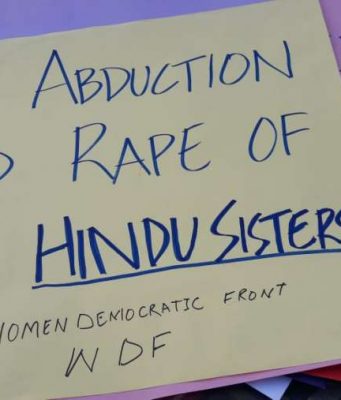 ABDUCTION
RAPE OF
HINDU SISTERS
WOMEN DEMOCRATIC FRONT
WDF